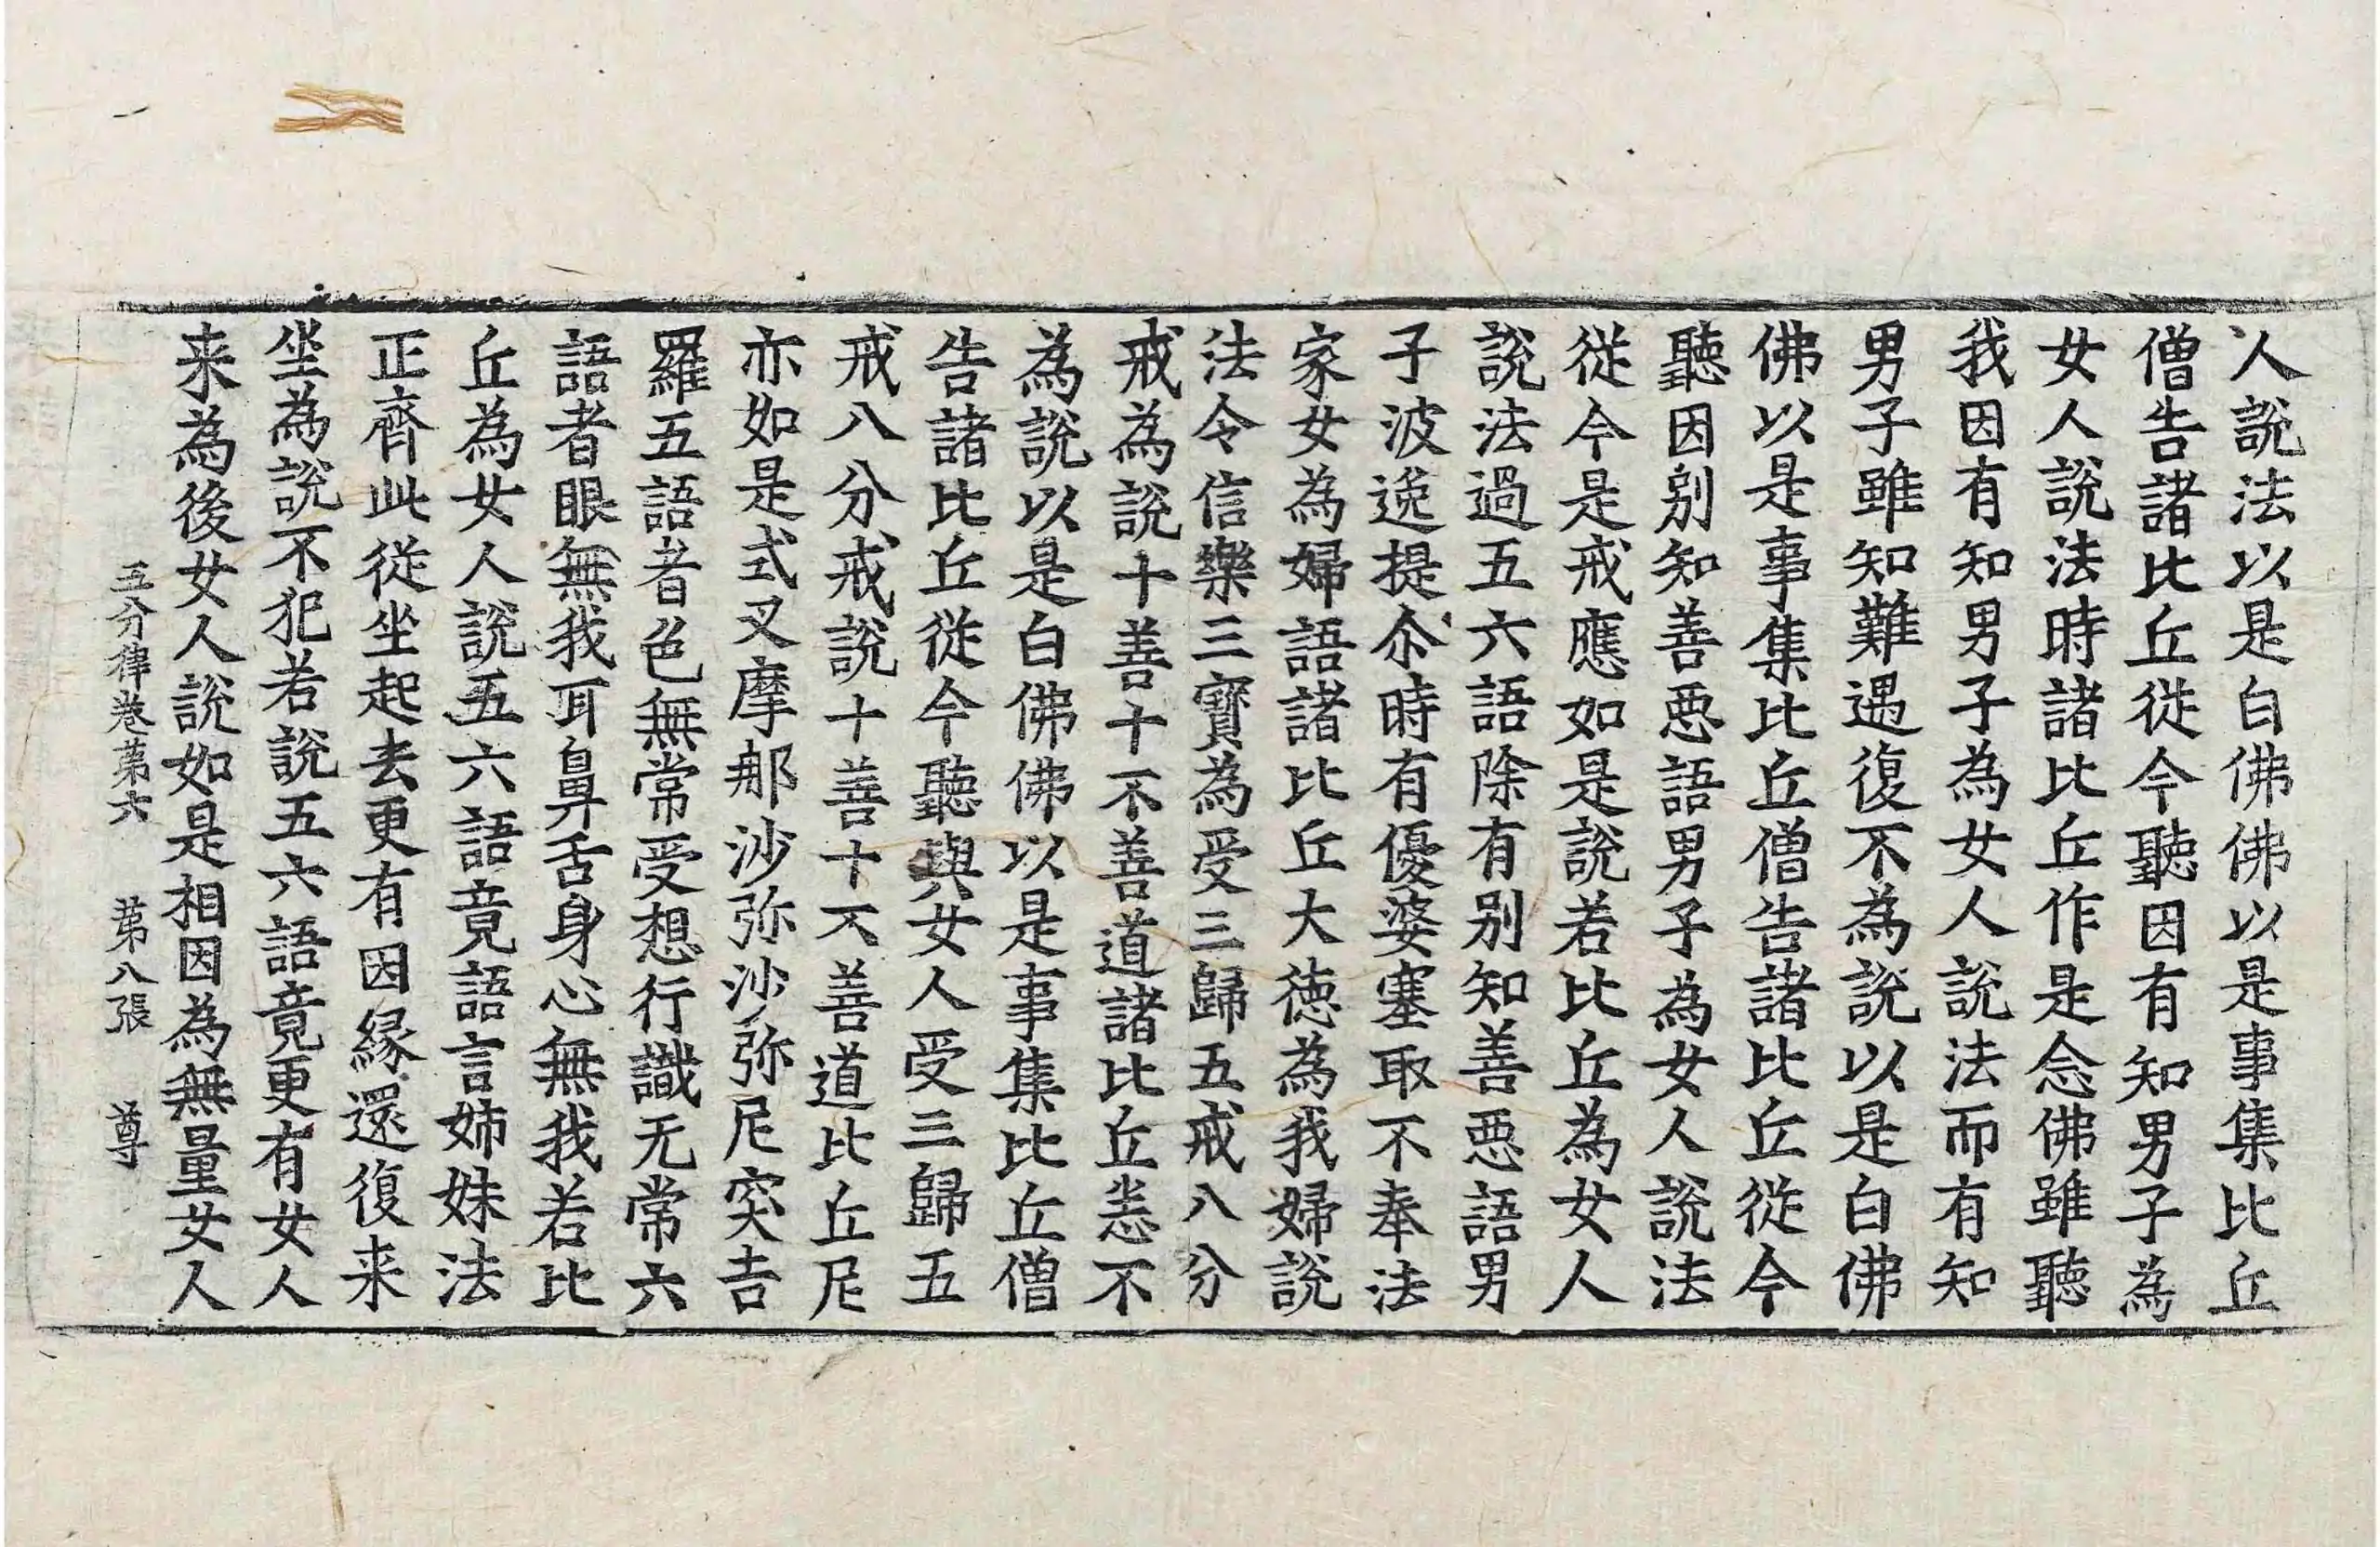 人說法以是白佛佛以是事集比丘
僧告諸比丘從今聽因有知男子為
女人說法時諸比丘作是念佛雖聽
我因有知男子為女人說法而有知
男子雖知難遇復不為說以是白佛
佛以是事集比丘僧告諸比丘從今
聽因别知善惡語男子為女人說法
從今是戒應如是說若比丘為女人
說法過五六語除有别知善惡語男
子波逸提尒時有優婆塞取不奉法
家女為婦語諸比丘大德為我婦說
法令信樂三寶為受三歸五戒八分
戒為說十善十不善道諸比丘恙不
為說以是白佛佛以是事集比丘僧
告諸比丘從今聽與女人受三歸五
戒八分戒說十善十不善道比丘尼
亦如是式叉摩那沙弥沙弥尼突吉
羅五語者色無常受想行識无常六
語者眼無我耳鼻舌身心無我若比
丘為女人說五六語竟語言姊妹法
正齊此從坐起去更有因縁還復来
坐為說不犯若說五六語竟更有女人
来為後女人說如是相因為無量女人
五分律卷第六 第八張 尊